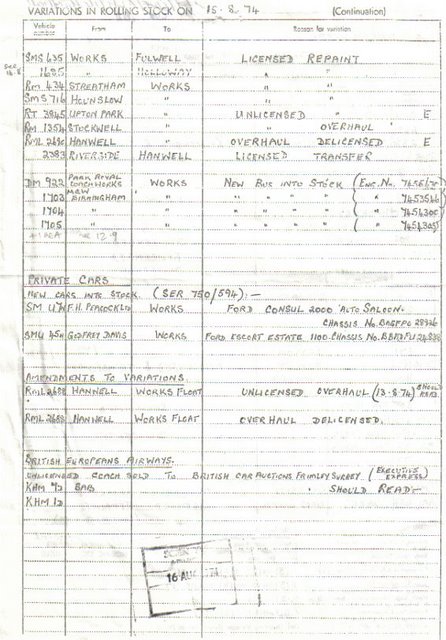 VARIATIONS IN ROLLING STOCK ON 15.8.74 (Continuation)
Vehicle number From To Reason for variation
SMS 435 WORKS FULWELL LICENSED REPAINT
1685 " HOLLOWAY " "
RM 434 STREATHAM WORKS " "
SMS 716 HOUNSLOW " " "
RT 3845 UPTON PARK " UNLICENSED " E
RM 1354 STOCKWELL " " OVERHAUL "
RML HANWELL " OVERHAUL DELICENSED E
2383 RIVERSIDE HANWELL LICENSED TRANSFER
DM 922 PARK ROYAL COACHWORKS WORKS NEW BUS INTO STOCK (ENG. No.
1703 MCW BIRMINGHAM " " " " " (
1704 " " " " " " (" 7454300)
1705 " " " " " " (" 7454305)
12.9
PRIVATE CARS
NEW CARS INTO STOCK. (SER 750/594):-
SM WORKS FORD CONSUL 2000 AUTO SALOON.
CHASSIS No.
SMU GODFREY DAVIS WORKS FORD ESCORT ESTATE 1100. CHASSIS No.
AMENDMENTS TO VARIATIONS.
RML 2688 HANWELL WORKS FLOAT UNLICENSED OVERHAUL (13.8.74) SHOULD READ.
RML 2688 HANWELL WORKS FLOAT OVERHAUL DELICENSED.
BRITISH EUROPEANS AIRWAYS.
UNLICENSED COACH SOLD TO BRITISH CAR AUCTIONS FRIMLEY SURREY (EXECUTIVE EXPRESS)
KHM SHOULD READ-
KHM 1D
16 AUG